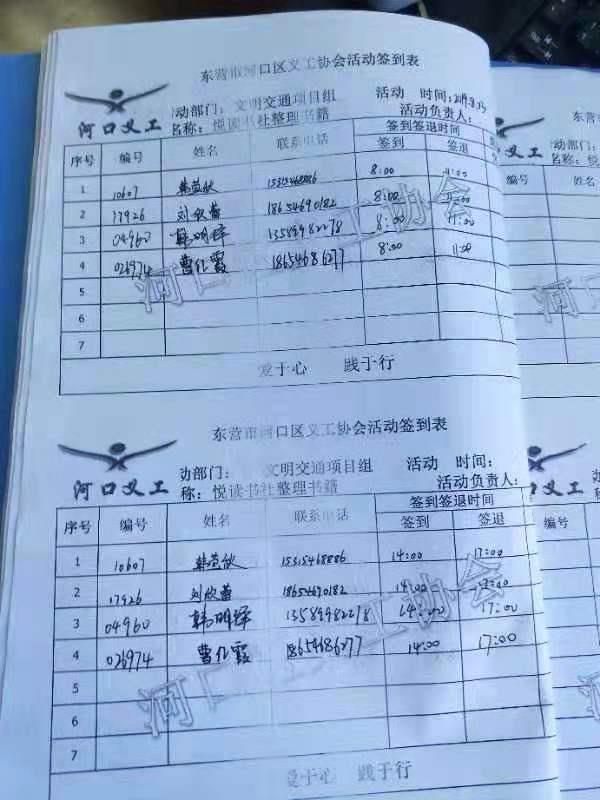 东营市河口区义工协会活动签到表
动部门：文明交通项目组 活动 时间：
河口义工 名称：悦读书社整理书籍 活动负责人：
序号 编号 姓名 联系电话 签到签退时间
签到 签退
1 10607 15315468886 8:00 11:00
2 17926 18654690182 8:00 11:00
3 04960 韩明泽 13589982278 8:00 11:00
4 026974 曹仁霞 18654686277 8:00 11:00
5
6
7
爱于心 践于行
东营市河口区义工协会活动签到表
动部门： 文明交通项目组 活动 时间：
河口义工 称：悦读书社整理书籍 活动负责人：
序号 编号 姓名 联系电话 签到签退时间
签到 签退
1 10607 15315468886 14:00 17:00
2 17926 18654690182 14:00 17:00
3 04960 韩明泽 13589982278 14:00 17:00
4 026974 曹仁霞 18654686277 14:00 17:00
5
6
7
爱于心 践于行
东营
动部门：
义工 名称：悦
编号 姓名
东营
动部门：
义工 称：
编号